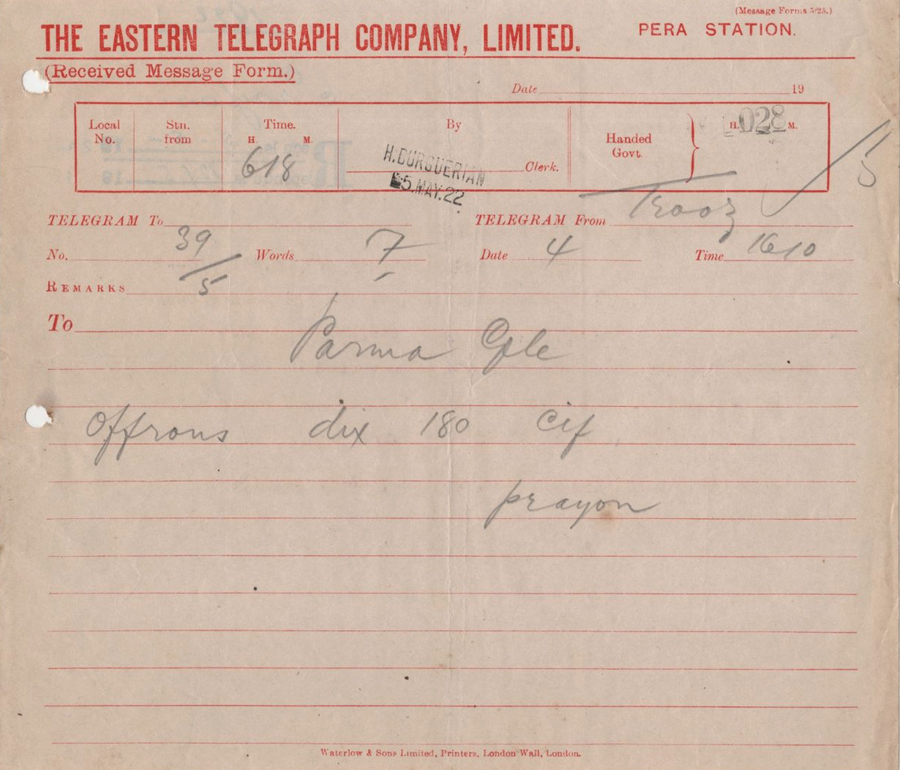 (Message Forms 5/25.)
THE EASTERN TELEGRAPH COMPANY, LIMITED. PERA STATION.
(Received Message Form.)
Date 19
Local No. Stn. from Time. H. M. 618 By Clerk. Handed Govt. H. 1028 M.
H. DURGUERIAN
5. MAY. 22
TELEGRAM To TELEGRAM From Trooz
No. 39 Words 7 Date 4 Time 1610
REMARKS 5
To
Parma Gple
Offrons dix 180 cif
prayon
Waterlow & Sons Limited, Printers, London Wall, London.